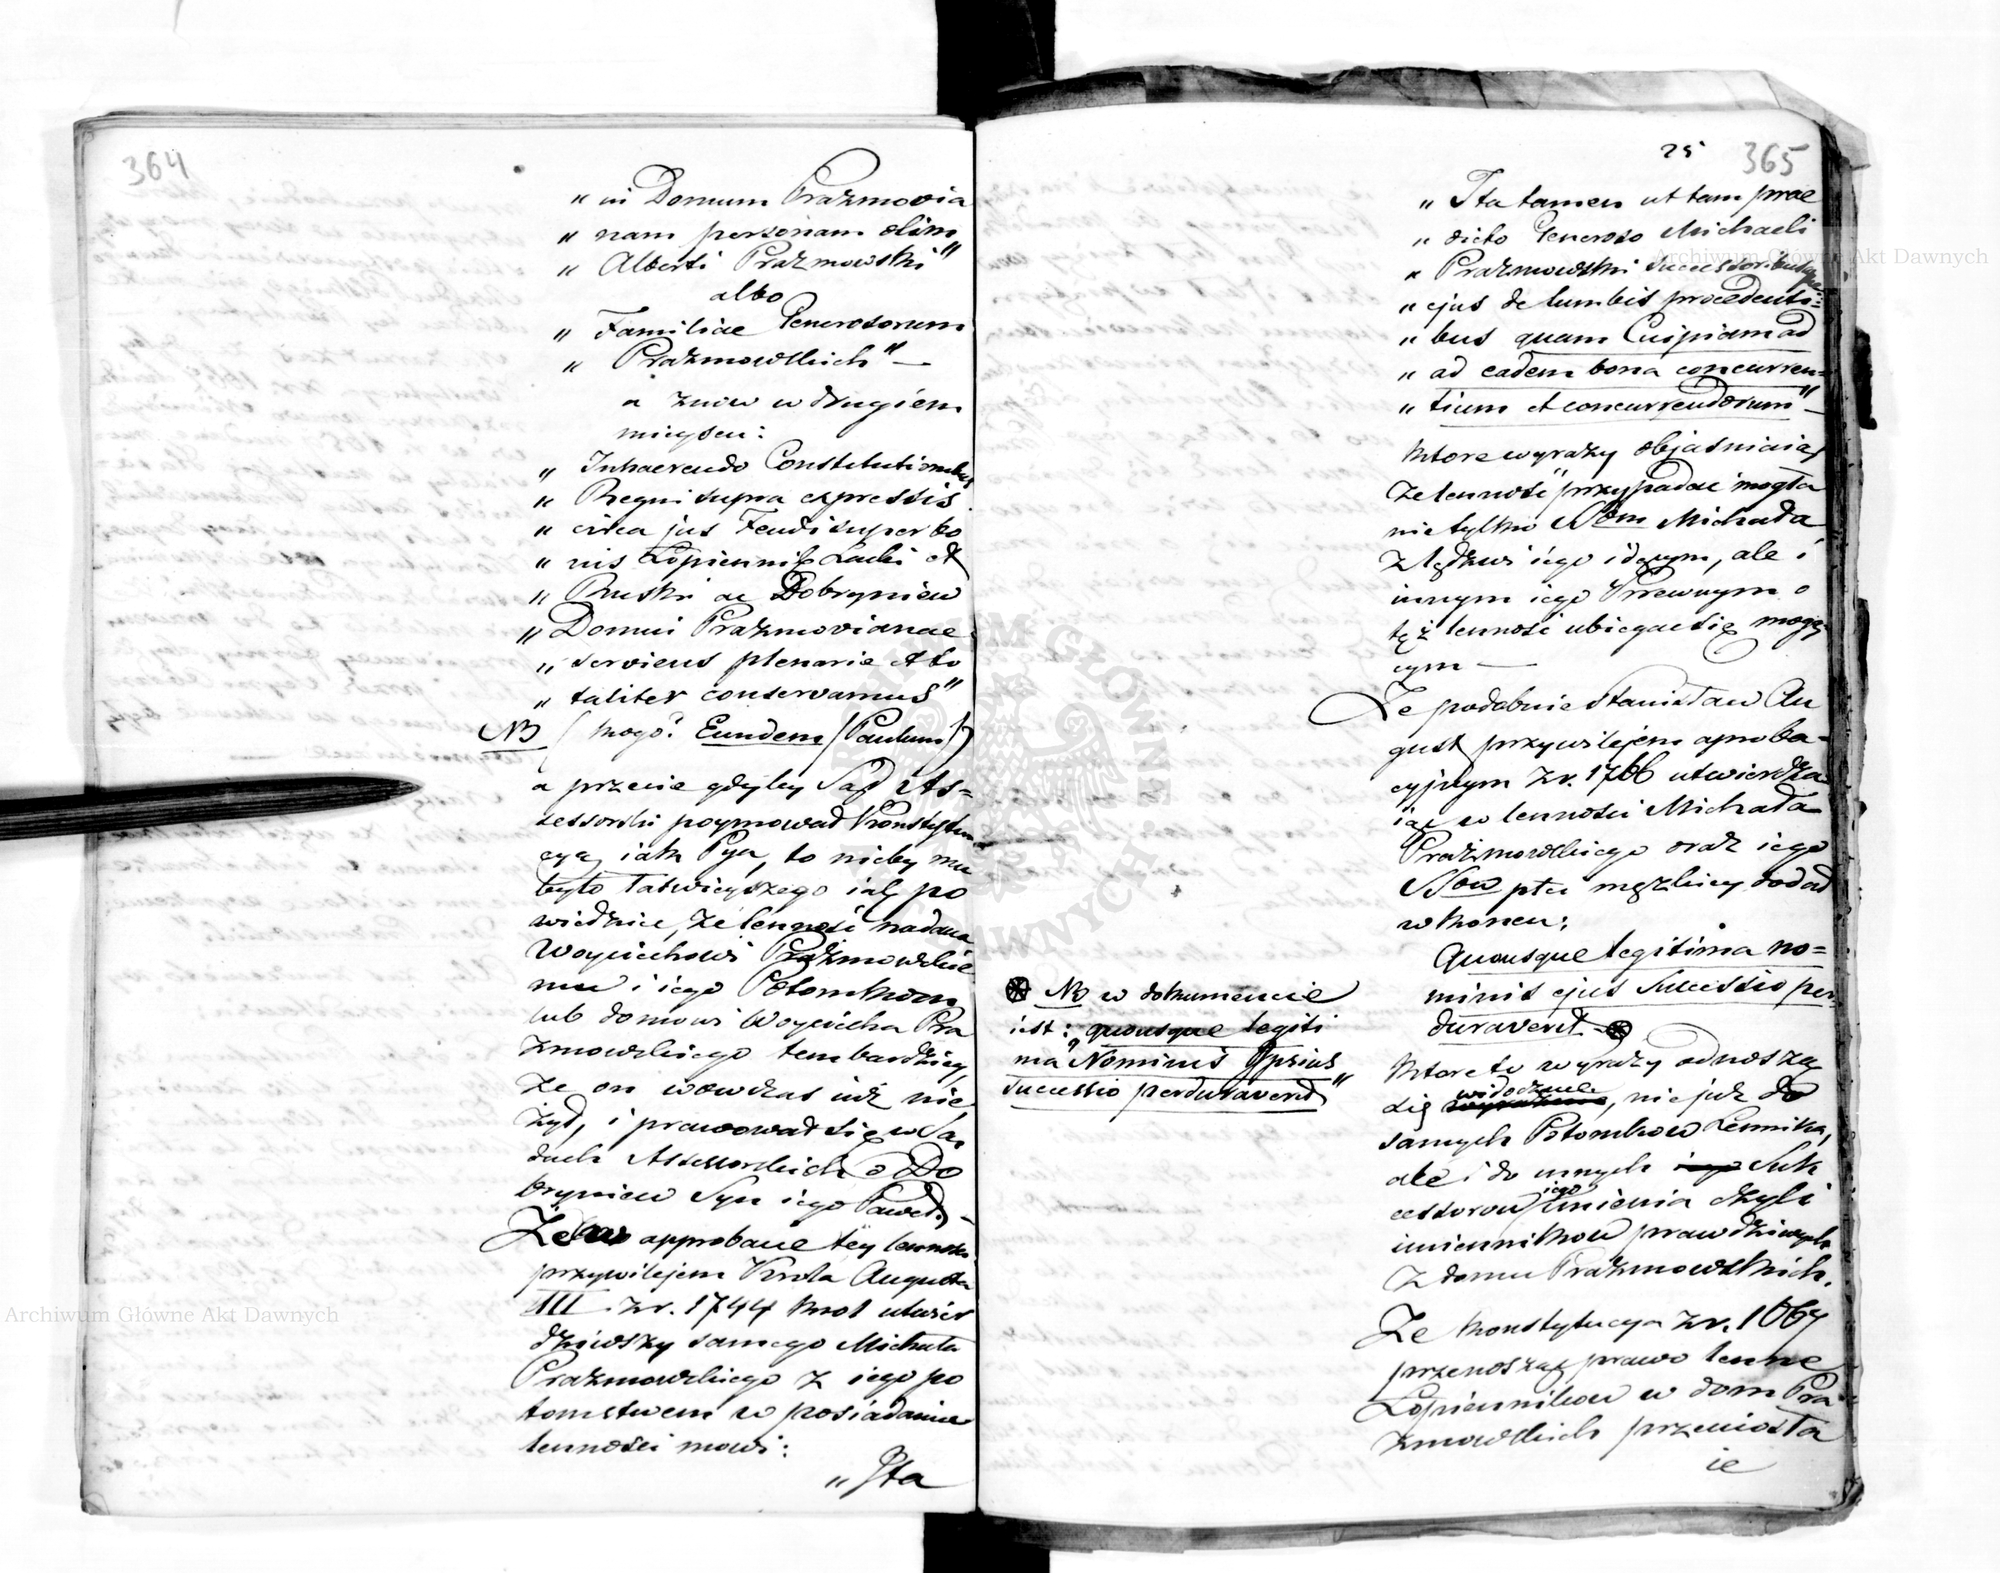 364
„ in Domum Prażmovia
„ nam personam olim
„ Alberti Prażmowski"
albo
„ Familiae Generosorum
„ Prażmowskich" —
a znow w drugiem
mieyscu:
„ Inhaerendo Constitutionibus
„ Regni supra expressis
„ circa jus Feudi super bo
„ nis Łopiennik Lacki et
„ Ruski ac Dobryniow
„ Domui Prażmovianae
„ serviens plenarie et to
„ taliter conservamus"
NB ( mogł: Eundem (Paulum))
a przecie gdyby Sąd As=
sessorski poymował Konstytu
cyą, iak Pyn, to nicby mu
było łatwieyszego iak po
wiedziec, że lenność nadana
Woyciechowi Prażmowskie
mu i iego Potomkom
lub domowi Woyciecha Pra
żmowskiego tembardziey,
że on wowczas iuż nie
żył, i prawował się w Są
dach Assessorskich o Do
bryniow Syn iego Paweł. —
Że w approbacie tey lennosci
przywilejem Krola Augusta
III. z r. 1744 Krol utwier
dziwszy samego Michała
Prażmowskiego z iego po
tomstwem w posiadanie
lenności mowi:
„ Ita
25 365
„ Ita tamen ut tam prae
„ dicto Generoso Michaeli
„ Prażmowski successoribusque
„ ejus de lumbis procedenti=
„ bus quam Cuipiam ad
„ ad eadem bona concurren=
„ tium et concurrendorum" —
ktore wyrazy objasniaią,
że lenność przypadac mogła
nie tylko SSom Michała
z lędźwi iego idącym, ale i
innym iego Krewnym o
tęż lenność ubiegac się mogą
cym —
Że podobnie Stanisław Au
gust przywilejem aproba=
cyjnym z r. 1766 utwierdza
iąc w lenności Michała
Prażmowskiego oraz iego
SSow płci męzkiey dodał
w koncu:
Quousque legitima no=
minis ejus Successio per=
duraverit
NB w dokumencie
iest: quousque legiti
ma „Nominis Ipsius
successio perduraverit"
Ktore to wyrazy odnoszą
się widocznie, nie już do
samych Potomkow Lennika,
ale i do innych Suk
cessorow iego Imienia czyli
imiennikow prawdziwych
z domu Prażmowskich.
Że Konstytucya z r. 1667
przenosząc prawo lenne
Łopiennikow w dom Pra
żmowskich przeniosła
ie